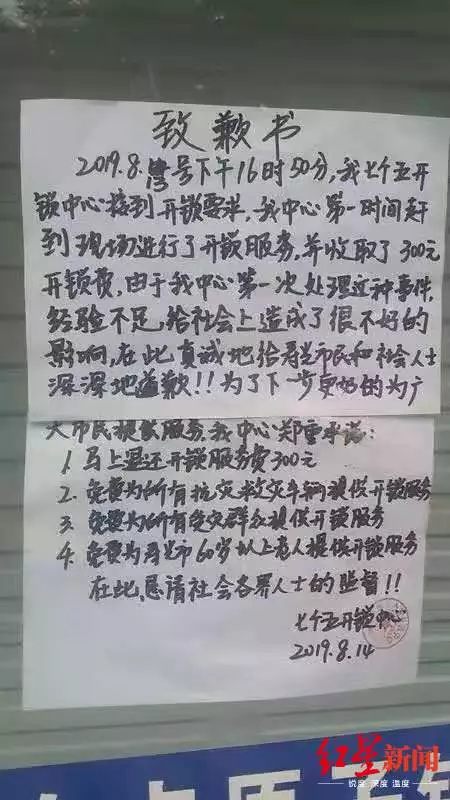 致歉书
2019.8.13号下午16时50分，我七个五开
锁中心接到开锁要求，我中心第一时间赶
到现场进行了开锁服务，并收取了300元
开锁费，由于我中心第一次处理这种事件，
经验不足，给社会上造成了很不好的
影响，在此真诚地给寿光市民和社会人士
深深地道歉！！为了下一步更好的为广
大市民提供服务，我中心郑重承诺：
1. 马上退还开锁服务费300元
2. 免费为所有抗灾救灾车辆提供开锁服务
3. 免费为所有受灾群众提供开锁服务
4. 免费为寿光市60岁以上老人提供开锁服务
在此，恳请社会各界人士的监督！！
七个五开锁中心
2019.8.14
红星新闻
锐度 深度 温度